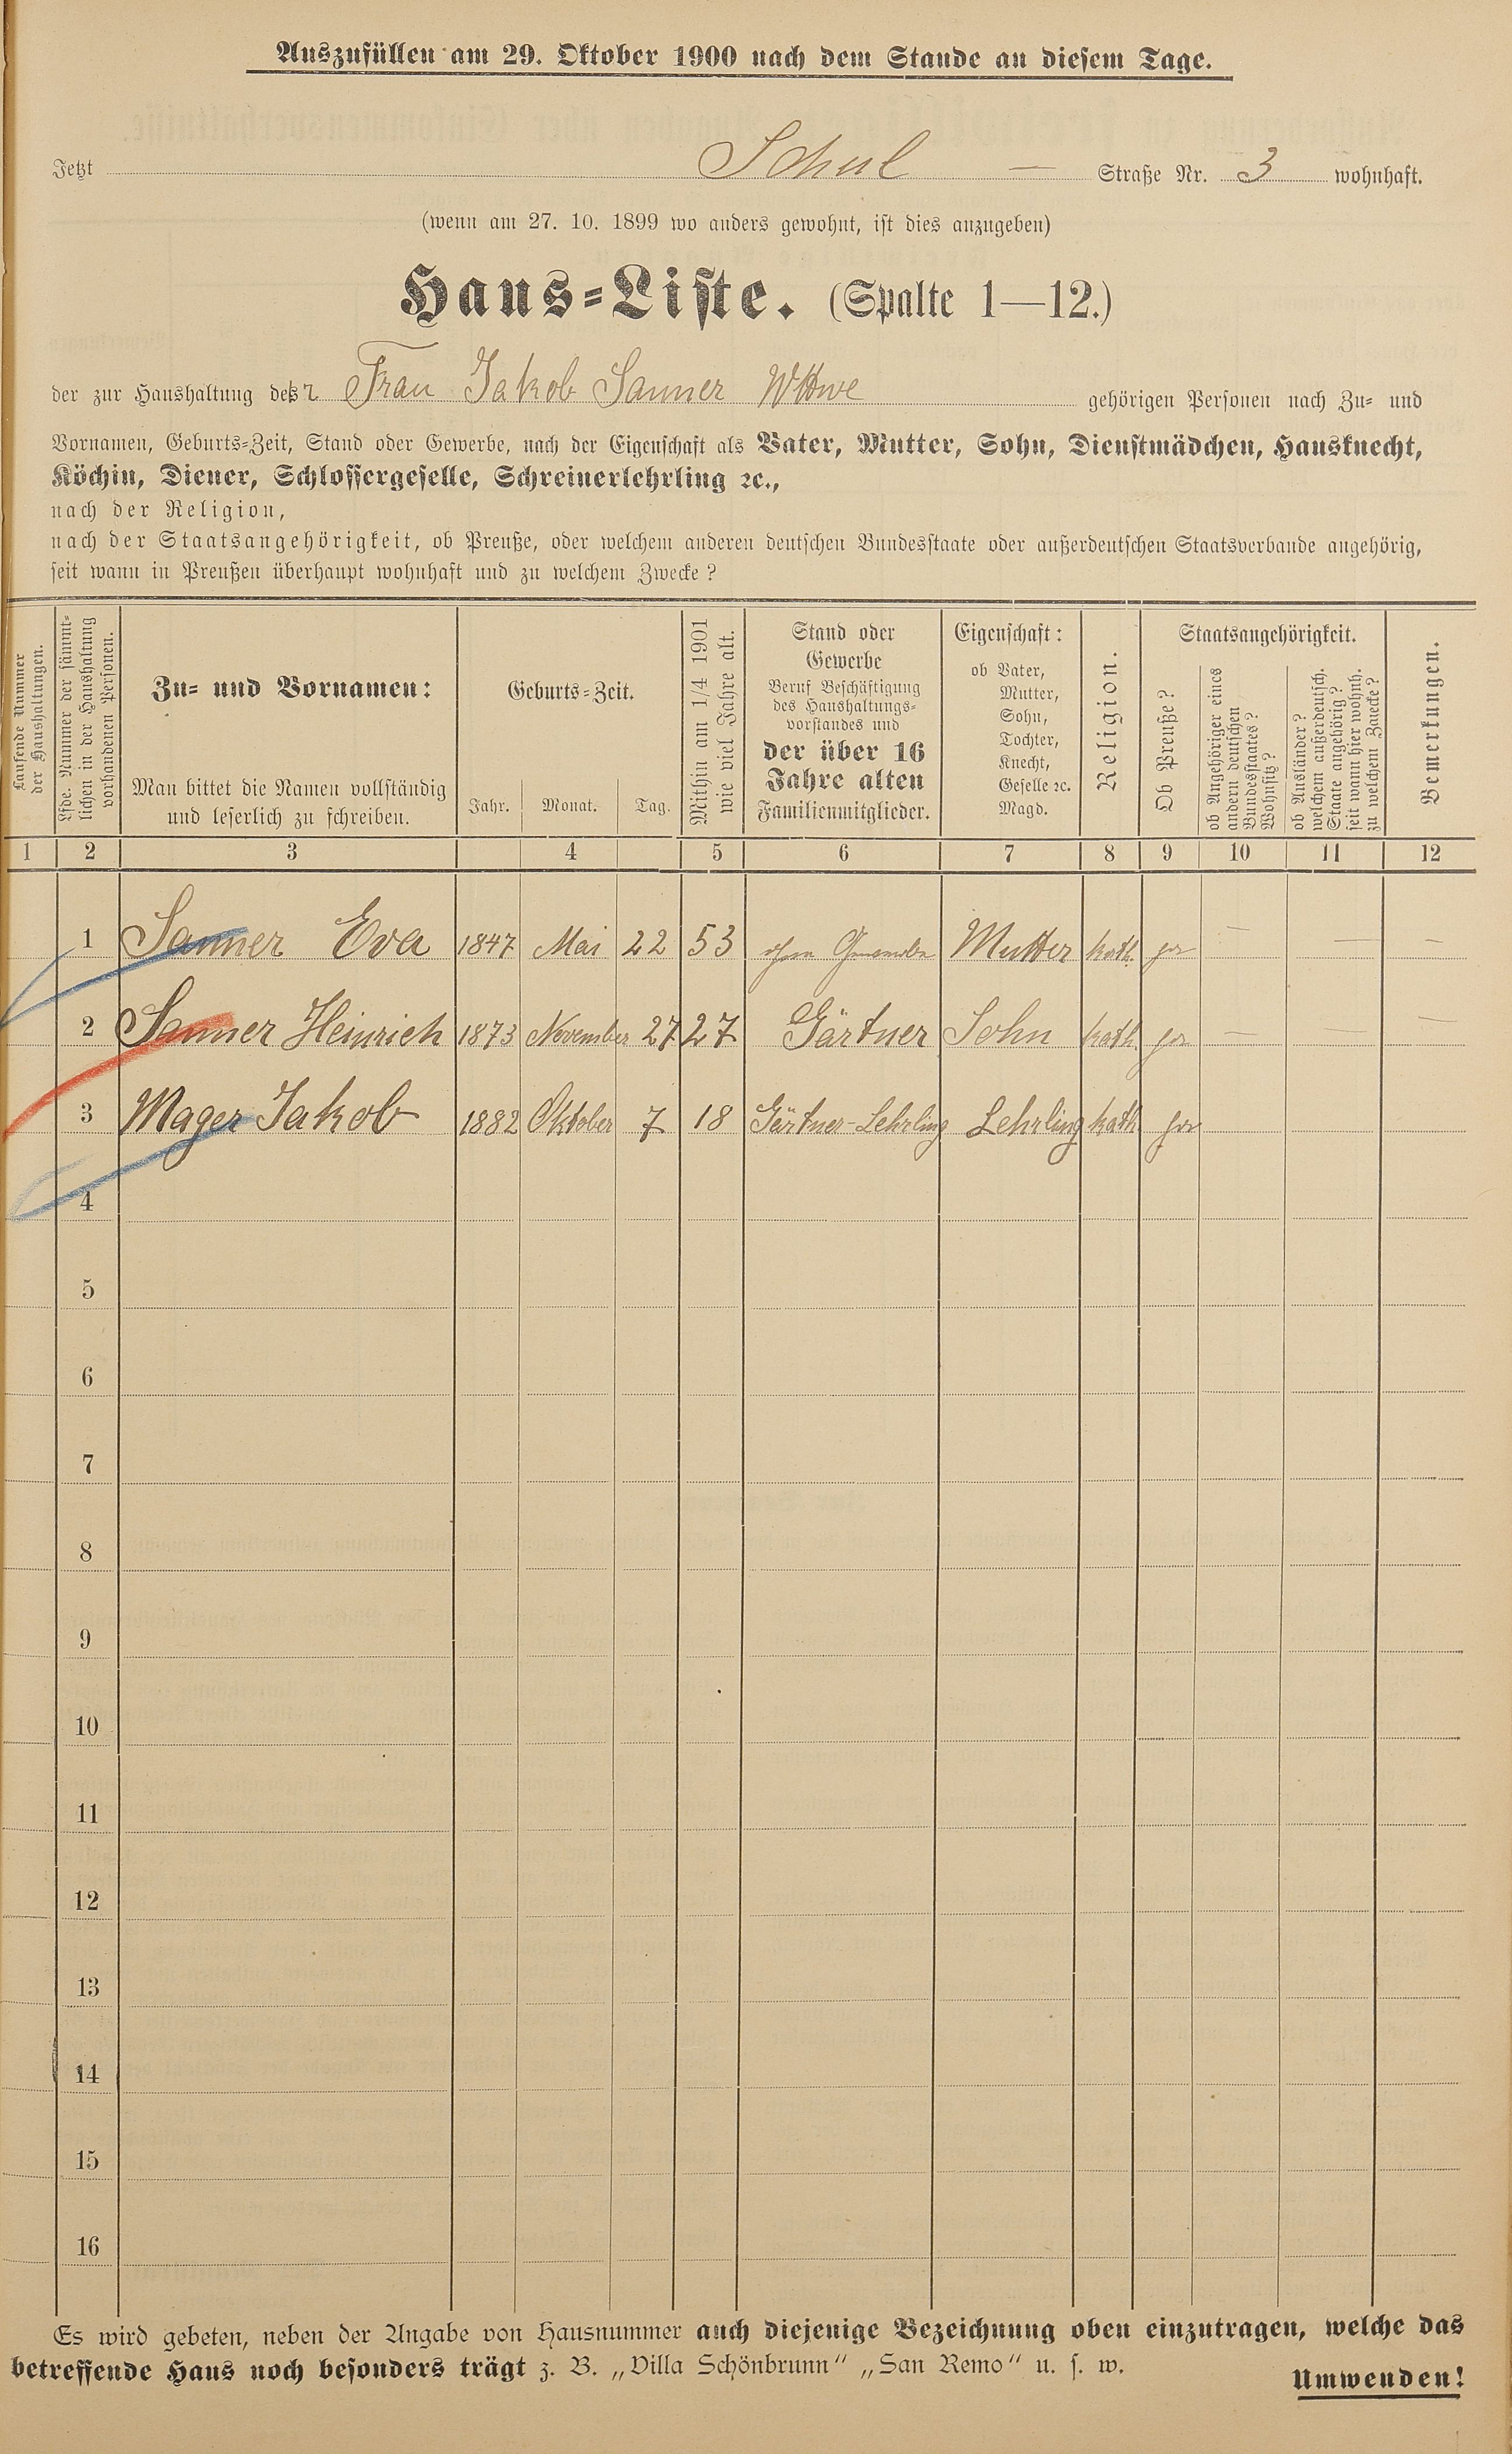 Auszufüllen am 29. Oktober 1900 nach dem Stande an diesem Tage.
Jetzt Schul — Straße Nr. 3 wohnhaft.
(wenn am 27. 10. 1899 wo anders gewohnt, ist dies anzugeben)
Haus-Liste. (Spalte 1—12.)
der zur Haushaltung des r Frau Jakob Sanner Wttwe gehörigen Personen nach Zu- und
Vornamen, Geburts-Zeit, Stand oder Gewerbe, nach der Eigenschaft als Vater, Mutter, Sohn, Dienstmädchen, Hausknecht,
Köchin, Diener, Schlossergeselle, Schreinerlehrling ꝛc.,
nach der Religion,
nach der Staatsangehörigkeit, ob Preuße, oder welchem anderen deutschen Bundesstaate oder außerdeutschen Staatsverbande angehörig,
seit wann in Preußen überhaupt wohnhaft und zu welchem Zwecke?
Laufende Nummer
der Haushaltungen.
Lfde. Nummer der sämmt-
lichen in der Haushaltung
vorhandenen Personen.
Zu- und Vornamen:
Man bittet die Namen vollständig
und leserlich zu schreiben.
Geburts-Zeit.
Jahr. Monat. Tag.
Mithin am 1/4 1901
wie viel Jahre alt.
Stand oder
Gewerbe
Beruf Beschäftigung
des Haushaltungs-
vorstandes und
der über 16
Jahre alten
Familienmitglieder.
Eigenschaft:
ob Vater,
Mutter,
Sohn,
Tochter,
Knecht,
Geselle ꝛc.
Magd.
Religion.
Staatsangehörigkeit.
Ob Preuße?
ob Angehöriger eines
andern deutschen
Bundesstaates?
Wohnsitz?
ob Ausländer?
welchem außerdeutsch.
Staate angehörig?
seit wann hier wohnh.
zu welchem Zwecke?
Bemerkungen.
1 2 3 4 5 6 7 8 9 10 11 12
1 Sanner Eva 1847 Mai 22 53 ohne Gewerbe Mutter kath. ja — — —
2 Sanner Heinrich 1873 November 27 27 Gärtner Sohn kath. ja — — —
3 Mager Jakob 1882 Oktober 7 18 Gärtner-Lehrling Lehrling kath ja
4
5
6
7
8
9
10
11
12
13
14
15
16
Es wird gebeten, neben der Angabe von Hausnummer auch diejenige Bezeichnung oben einzutragen, welche das
betreffende Haus noch besonders trägt z. B. „Villa Schönbrunn“ „San Remo“ u. s. w.
Umwenden!